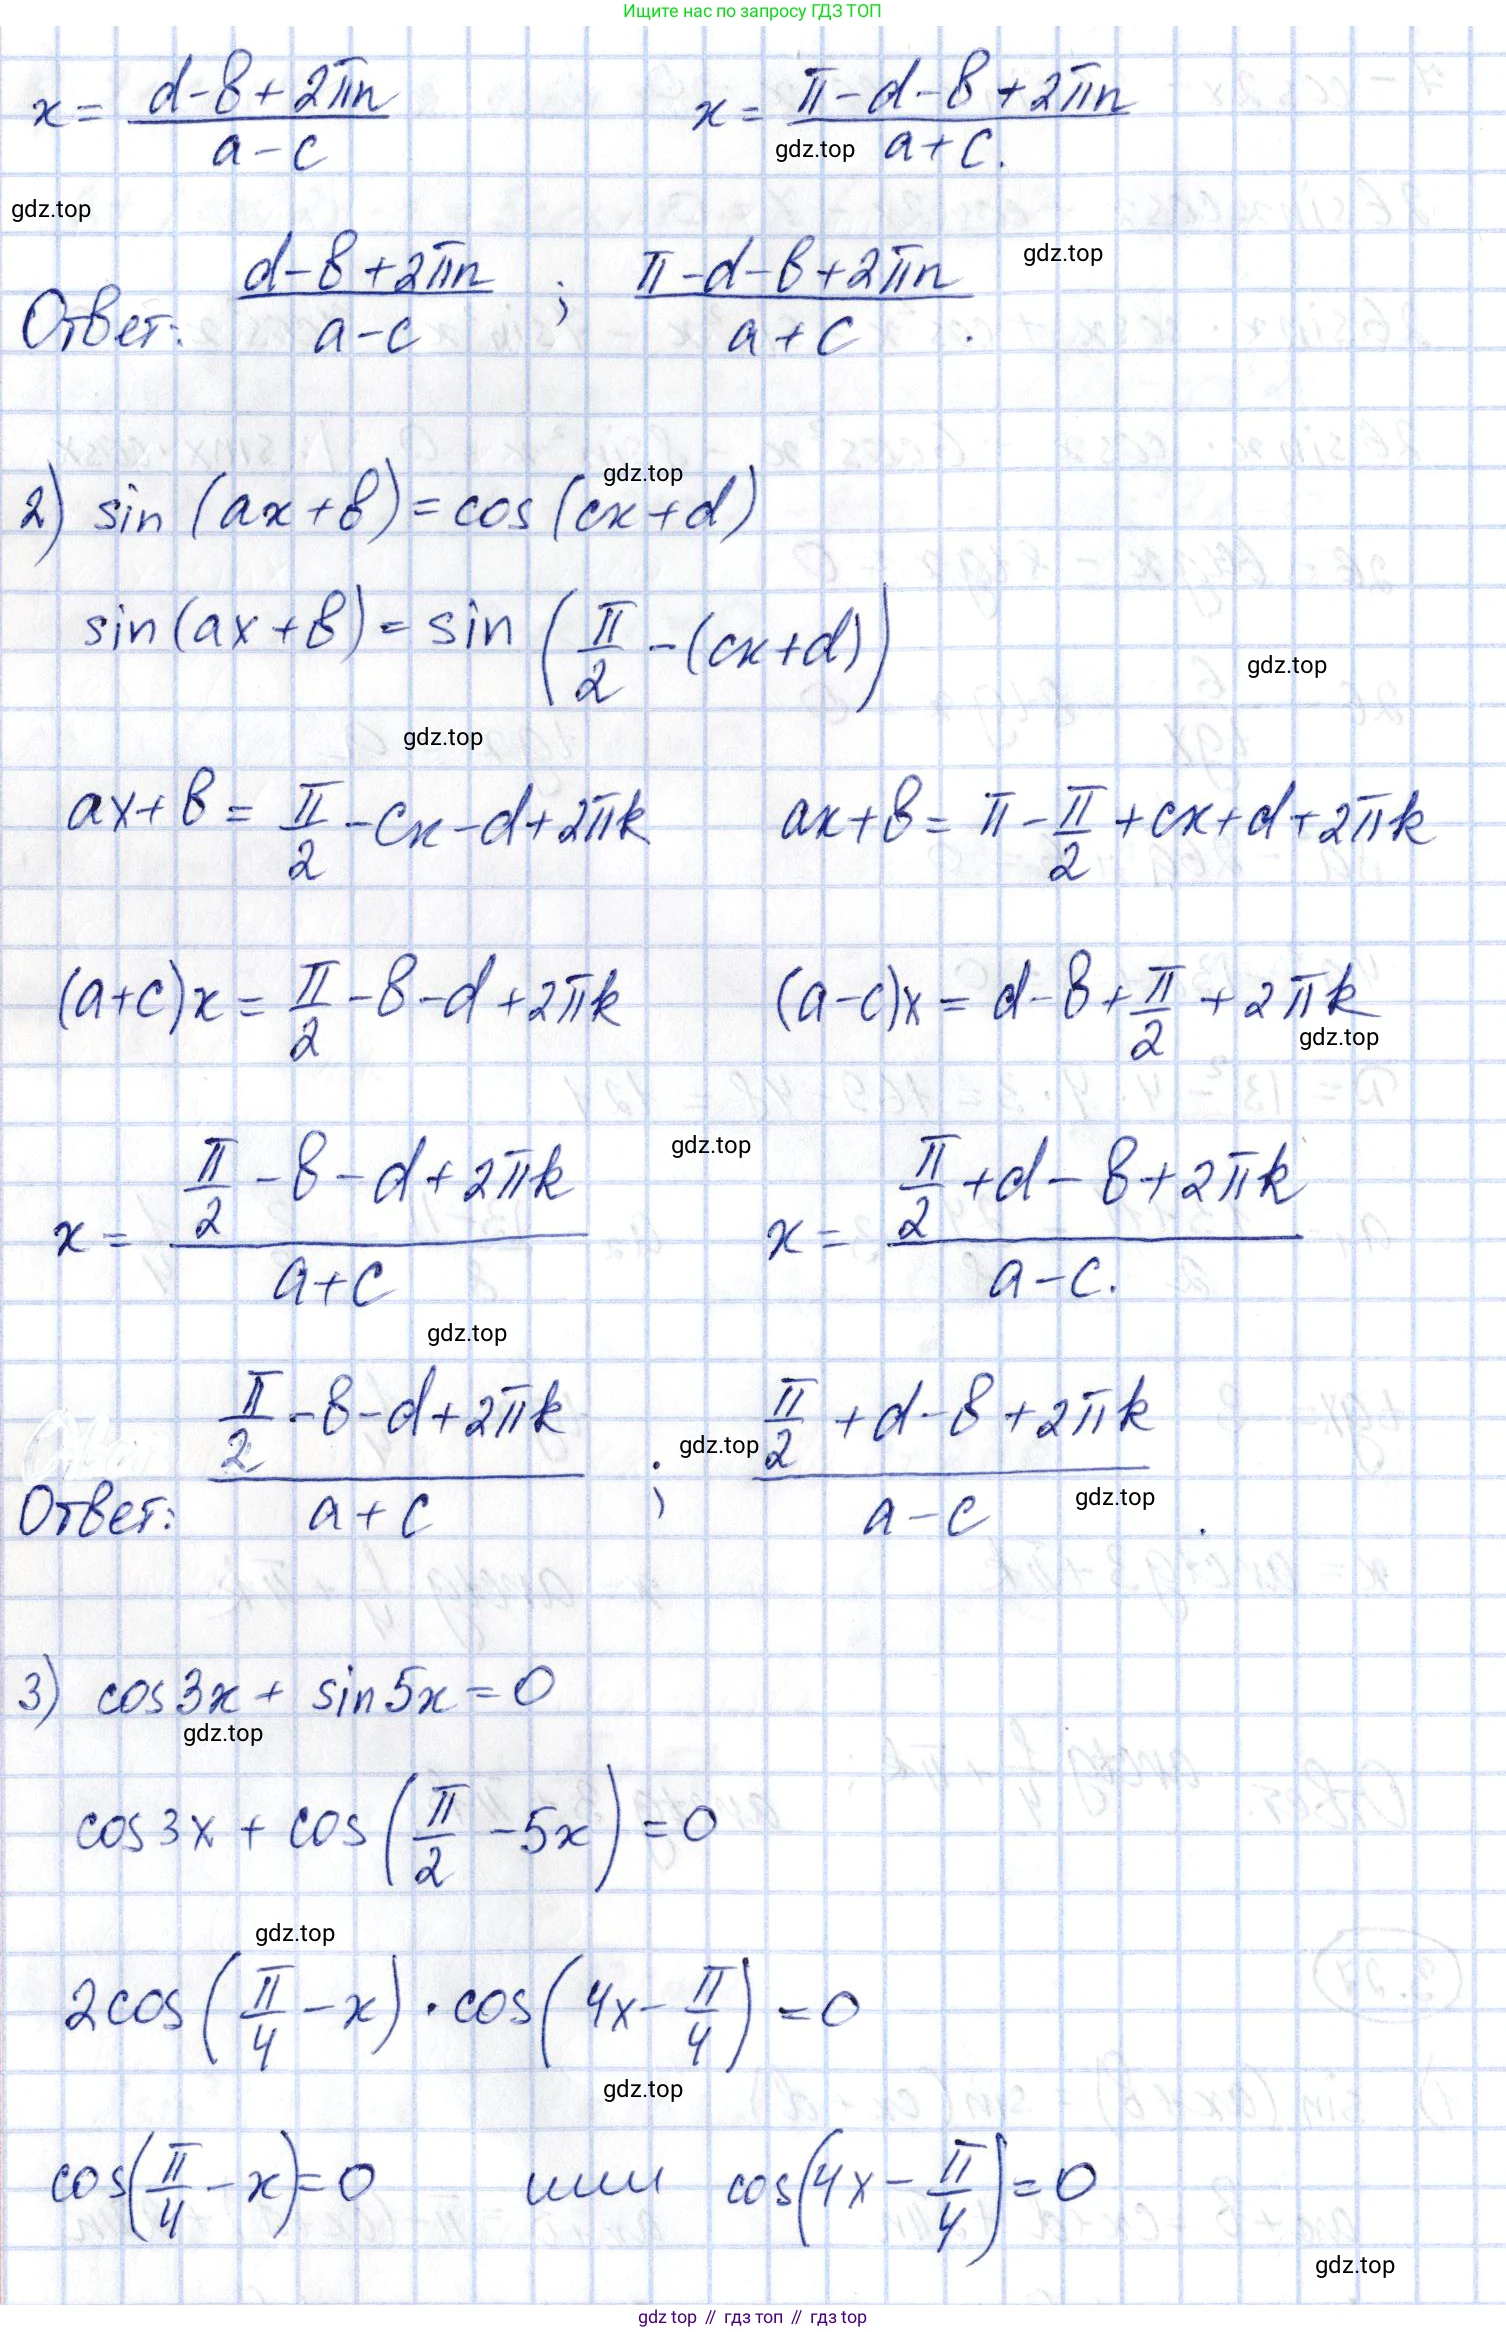 Ищите нас по запросу ГДЗ ТОП
x = (d-в+2πn)/(a-c)    x = (π-d-в+2πn)/(a+c).
gdz.top
gdz.top
gdz.top
Ответ: (d-в+2πn)/(a-c) ; (π-d-в+2πn)/(a+c).
gdz.top
2) sin(ax+в)=cos(cx+d)
sin(ax+в)=sin(π/2-(cx+d))
gdz.top
gdz.top
ax+в=π/2-cx-d+2πk    ax+в=π-π/2+cx+d+2πk
(a+c)x=π/2-в-d+2πk    (a-c)x=d-в+π/2+2πk
gdz.top
gdz.top
x=(π/2-в-d+2πk)/(a+c)    x=(π/2+d-в+2πk)/(a-c).
gdz.top
Ответ: (π/2-в-d+2πk)/(a+c) ; (π/2+d-в+2πk)/(a-c).
gdz.top
gdz.top
3) cos3x+sin5x=0
gdz.top
cos3x+cos(π/2-5x)=0
gdz.top
2cos(π/4-x)·cos(4x-π/4)=0
gdz.top
cos(π/4-x)=0    или    cos(4x-π/4)=0
gdz.top
gdz top // гдз топ // гдз top